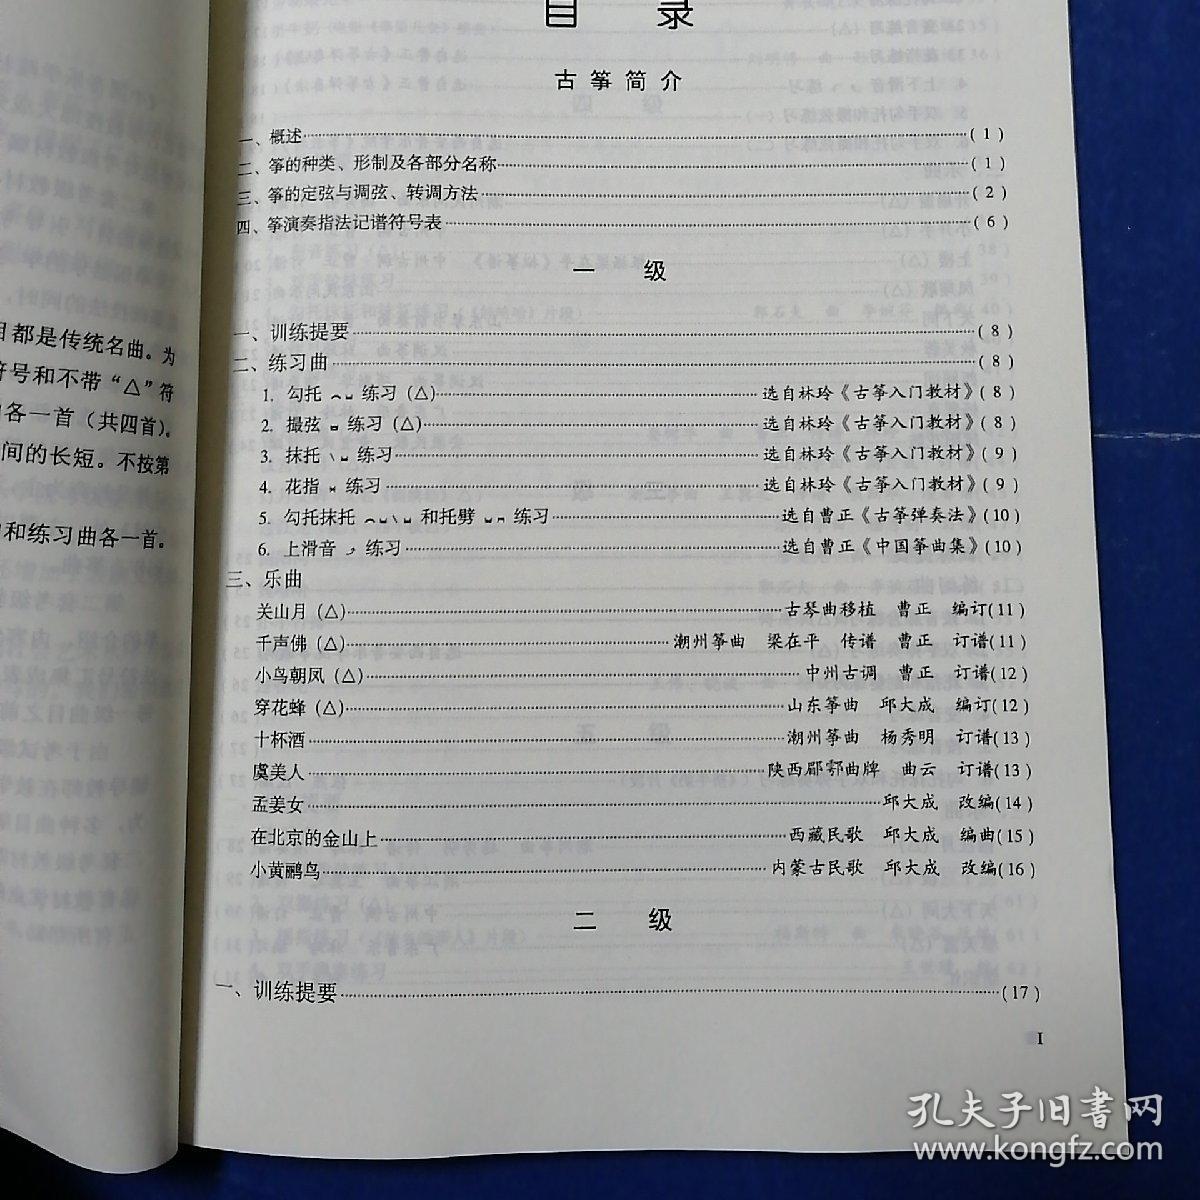 目 录
古筝简介
一、概述……(1)
二、筝的种类、形制及各部分名称……(1)
三、筝的定弦与调弦、转调方法……(2)
四、筝演奏指法记谱符号表……(6)
一 级
一、训练提要……(8)
二、练习曲……(8)
1. 勾托 练习(△)……选自林玲《古筝入门教材》(8)
2. 撮弦 练习(△)……选自林玲《古筝入门教材》(8)
3. 抹托 练习……选自林玲《古筝入门教材》(9)
4. 花指 练习……选自林玲《古筝入门教材》(9)
5. 勾托抹托 和托劈 练习……选自曹正《古筝弹奏法》(10)
6. 上滑音 练习……选自曹正《中国筝曲集》(10)
三、乐曲
关山月(△)……古琴曲移植 曹正 编订(11)
千声佛(△)……潮州筝曲 梁在平 传谱 曹正 订谱(11)
小鸟朝凤(△)……中州古调 曹正 订谱(12)
穿花蜂(△)……山东筝曲 邱大成 编订(12)
十杯酒……潮州筝曲 杨秀明 订谱(13)
虞美人……陕西郿鄠曲牌 曲云 订谱(13)
孟姜女……邱大成 改编(14)
在北京的金山上……西藏民歌 邱大成 编曲(15)
小黄鹂鸟……内蒙古民歌 邱大成 改编(16)
二 级
一、训练提要……(17)
I
目都是传统名曲。为
符号和不带“△”符
各一首（共四首）。
间的长短。不按第
和练习曲各一首。
孔夫子旧书网
www.kongfz.com